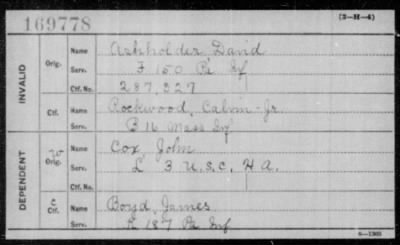 169778
(3-H-4)
INVALID
Orig.
Name Ashholder David
Serv. F 150 Pa Inf
Ctf. No. 287,327
Ctf.
Name Rockwood, Calvin Jr.
Serv. B 16 Mass Inf
DEPENDENT
W
Orig.
Name Cox, John
Serv. L 3 U.S.C. H A.
Ctf. No.
C
Ctf.
Name Boyd, James
Serv. K 187 Pa Inf
6-1903